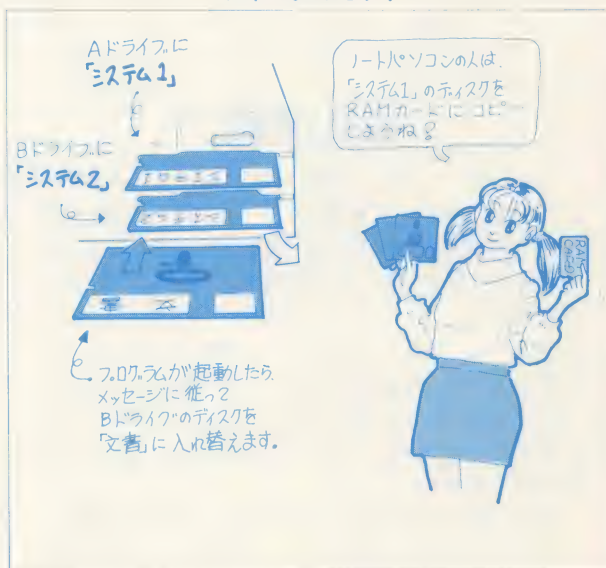 Aドライブに
「システム1」
Bドライブに
「システム2」
プログラムが起動したら
メッセージに従って
Bドライブのディスクを
「文書」に入れ替えます。
ノートパソコンの人は、
「システム1」のディスクを
RAMカードにコピー
しようね?
文書
RAM
CARD